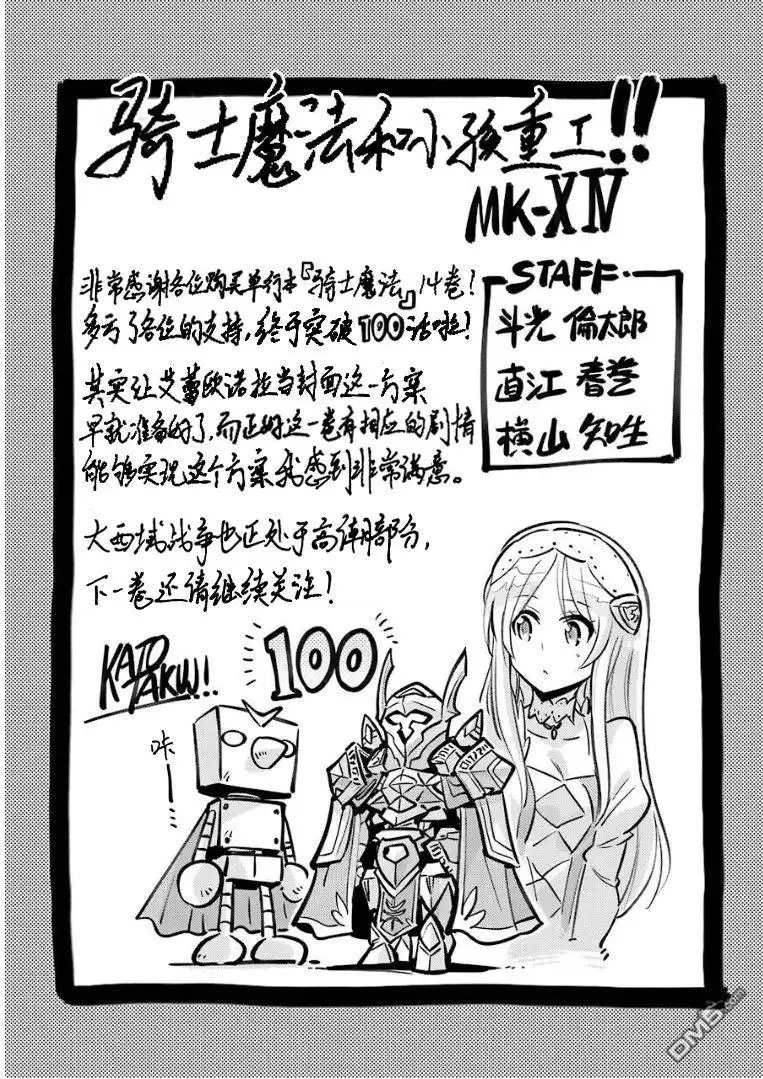 骑士魔法和小孩重工!!
MK-XIV
非常感谢各位购买单行本『骑士魔法』14卷!
多亏了各位的支持,终于突破100话啦!
其实让艾蕾欧诺拉当封面这一方案
早就准备好了,而正好这一卷有相应的剧情
能够实现这个方案我感到非常满意。
大西域战争也正处于高潮部分,
下一卷还请继续关注!
STAFF
斗光 倫太郎
直江 春巻
横山 知生
KATO
TAKU!!
100
咔
DM5.com